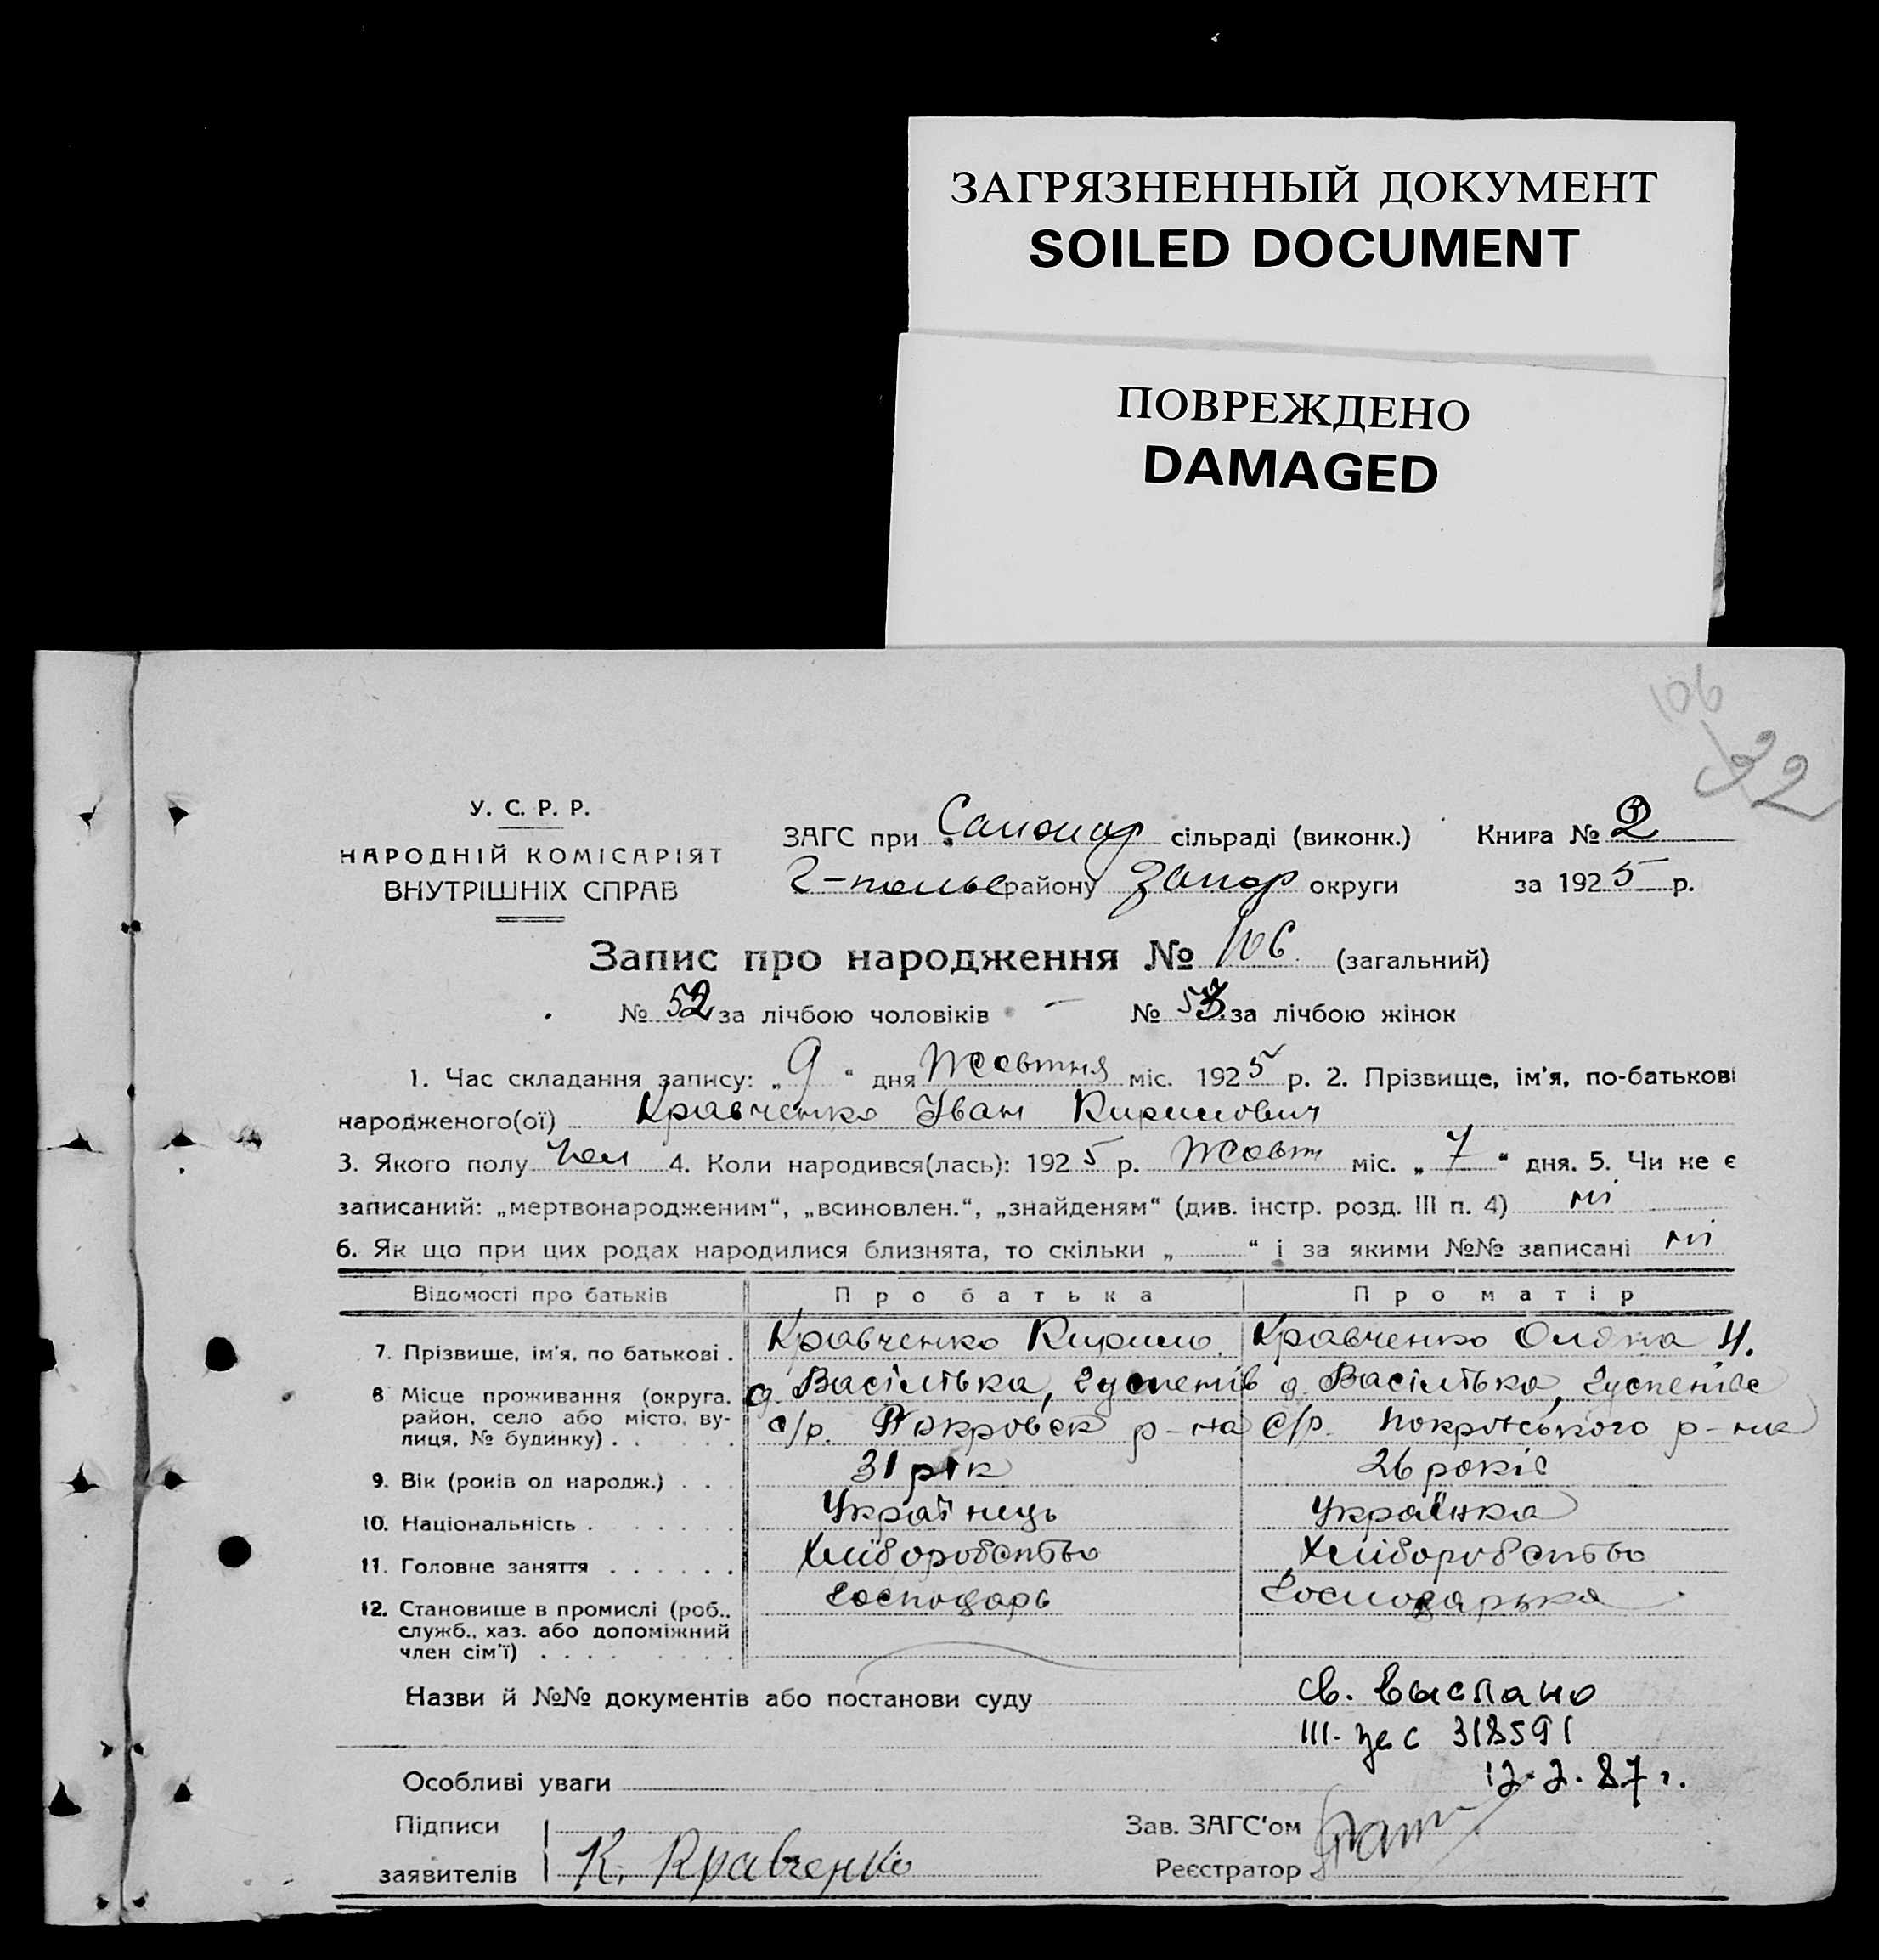 ЗАГРЯЗНЕННЫЙ ДОКУМЕНТ
SOILED DOCUMENT
ПОВРЕЖДЕНО
DAMAGED
106
32
У. С. Р. Р.
НАРОДНІЙ КОМІСАРІЯТ
ВНУТРІШНІХ СПРАВ
ЗАГС при сільраді (виконк.) Книга № 2
району Запор округи за 1925 р.
Запис про народження № 106 (загальний)
№ 52 за лічбою чоловіків — № за лічбою жінок
1. Час складання запису: „9“ дня Жовтня міс. 1925 р. 2. Прізвище, ім'я, по-батькові
народженого(ої) Кравченко Іван Кирилович
3. Якого полу Чол 4. Коли народився(лась): 1925 р. Жовт міс. „7“ дня. 5. Чи не є
записаний: „мертвонародженим“, „всиновлен.“, „знайденям“ (див. інстр. розд. III п. 4) ні
6. Як що при цих родах народилися близнята, то скільки „ “ і за якими №№ записані ні
Відомості про батьків Про батька Про матір
7. Прізвище, ім'я, по батькові . Кравченко Кирило. Кравченко Оляна И.
8 Місце проживання (округа, район, село або місто, вулиця, № будинку) . д. Васілівка, с/р. Покровск р-на д. Васілівка, с/р. Покровського р-на
9. Вік (років од народж.) . . . 31 рік 26 років
10. Національність . Українець Українка
11. Головне заняття . Хліборобство Хліборобство
12. Становище в промислі (роб., служб., хаз. або допоміжний член сім'ї) . Господарь Господарька
Назви й №№ документів або постанови суду св. выслано
III-
318591
Особливі уваги 12.2.87 г.
Підписи Зав. ЗАГС'ом
заявителів К. Кравченко Реєстратор